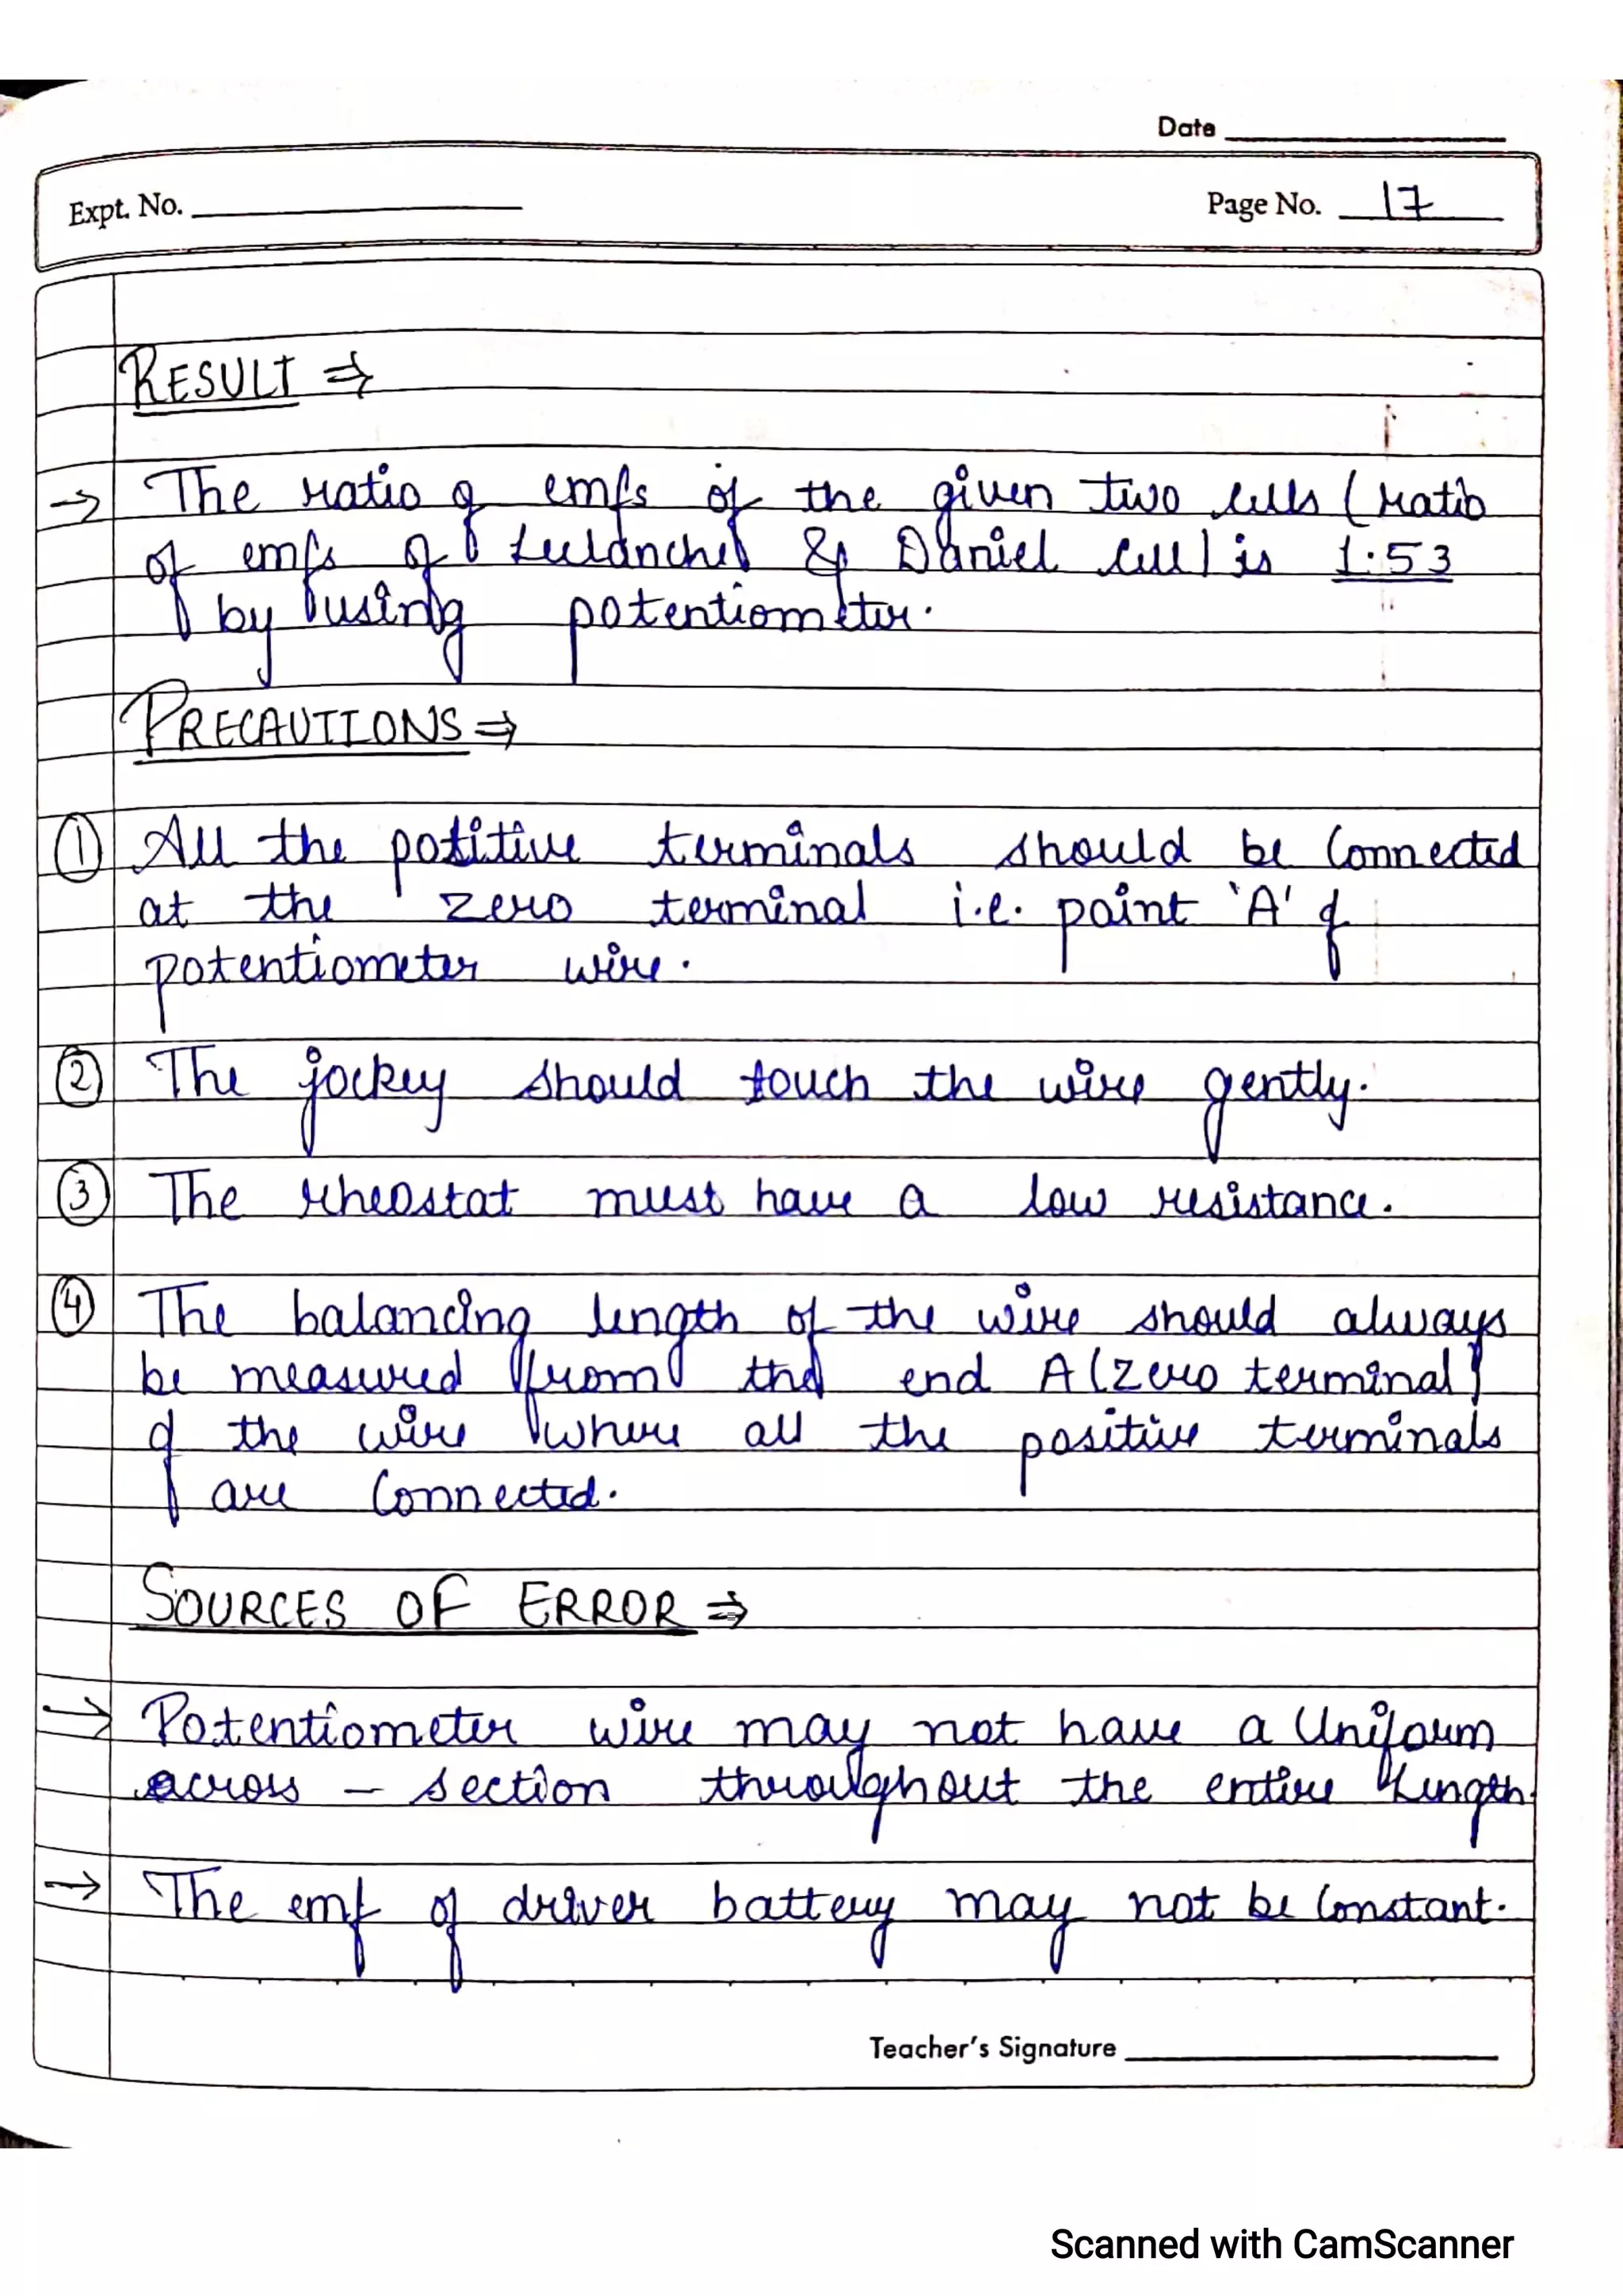 Date
Expt. No.
Page No. 17
RESULT ⇒
→ The ratio of emfs of the given two cells (ratio
of emfs of Leclanche & Daniel cell) is 1:53
by using potentiometer.
PRECAUTIONS ⇒
① All the potitive terminals should be Connected
at the zero terminal i.e. point 'A' of
potentiometer wire.
② The jockey should touch the wire gently.
③ The rheostat must have a low resistance.
④ The balancing length of the wire should always
be measured from the end A (zero terminal)
of the wire where all the positive terminals
are Connected.
SOURCES OF ERROR ⇒
→ Potentiometer wire may not have a Uniform
across - section throughout the entire length.
→ The emf of driver battery may not be Constant.
Teacher's Signature
Scanned with CamScanner